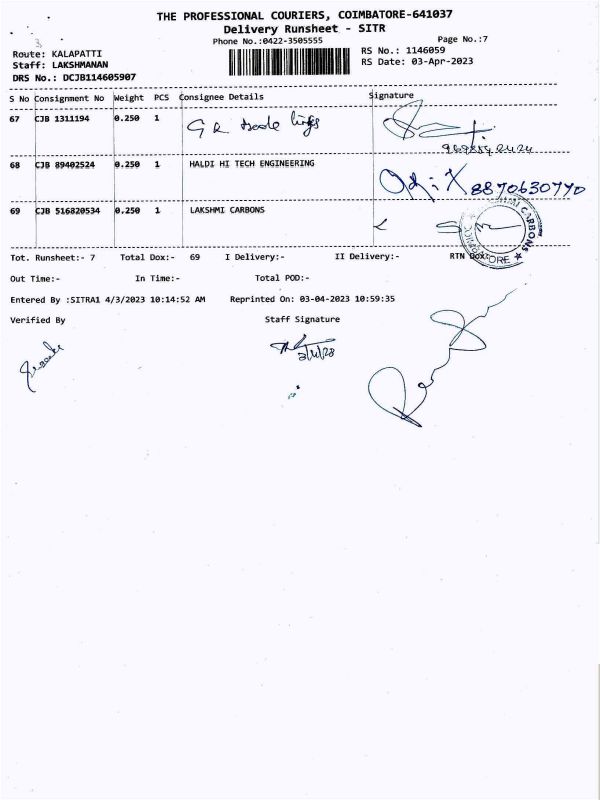 THE PROFESSIONAL COURIERS, COIMBATORE-641037
Delivery Runsheet - SITR
Phone No.:0422-3505555
Page No.:7
Route: KALAPATTI
Staff: LAKSHMANAN
DRS No.: DCJB114605907
RS No.: 1146059
RS Date: 03-Apr-2023
S No Consignment No Weight PCS Consignee Details Signature
67 CJB 1311194 0.250 1 G R trade links
68 CJB 89402524 0.250 1 HALDI HI TECH ENGINEERING 8870630770
69 CJB 516820534 0.250 1 LAKSHMI CARBONS
CARBONS ★
Tot. Runsheet:- 7 Total Dox:- 69 I Delivery:- II Delivery:- RTN Dox:
Out Time:- In Time:- Total POD:-
Entered By :SITRA1 4/3/2023 10:14:52 AM Reprinted On: 03-04-2023 10:59:35
Verified By Staff Signature
3/4/23